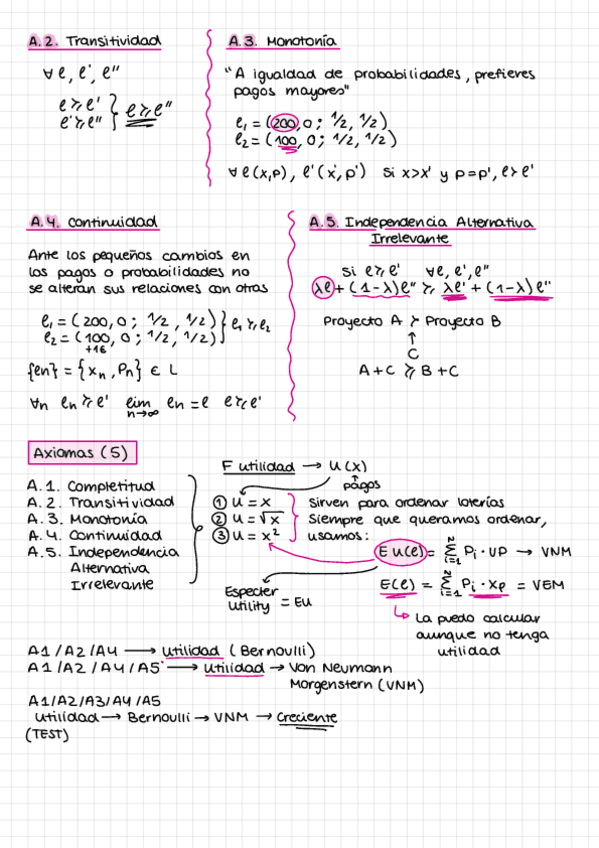 A.2. Transitividad
∀ e, e', e''
e ≽ e'
e' ≽ e'' } e ≽ e''
A.3. Monotonía
"A igualdad de probabilidades, prefieres
pagos mayores"
e₁ = (200, 0; 1/2, 1/2)
e₂ = (100, 0; 1/2, 1/2)
∀ e (x,p), e' (x', p') si x>x' y p=p', e ≻ e'
A.4. Continuidad
Ante los pequeños cambios en
los pagos o probabilidades no
se alteran sus relaciones con otras
e₁ = (200, 0; 1/2, 1/2)
e₂ = (100, 0; 1/2, 1/2) } e₁ ≽ e₂
+16
{en} = {xn, Pn} ∈ L
∀n en ≽ e' lim n→∞ en = e e ≽ e'
A.5. Independencia Alternativa
Irrelevante
si e ≽ e' ∀ e, e', e''
λe + (1-λ) e'' ≽ λe' + (1-λ) e''
Proyecto A ≻ Proyecto B
↑
C
A + C ≽ B + C
Axiomas (5)
A.1. Completitud
A.2. Transitividad
A.3. Monotonía
A.4. Continuidad
A.5. Independencia
Alternativa
Irrelevante
F utilidad → u(x)
pagos
① u = x
② u = √x
③ u = x²
Sirven para ordenar loterías
Siempre que queramos ordenar,
usamos:
E u(e) = Σ i=1 2 Pi · UP → VNM
E(e) = Σ i=1 2 Pi · xp = VEM
Especter
Utility = Eu
La puedo calcular
aunque no tenga
utilidad
A1 / A2 / A4 → utilidad (Bernoulli)
A1 / A2 / A4 / A5 → utilidad → Von Neumann
Morgenstern (VNM)
A1/A2/A3/A4/A5
utilidad → Bernoulli → VNM → Creciente
(TEST)